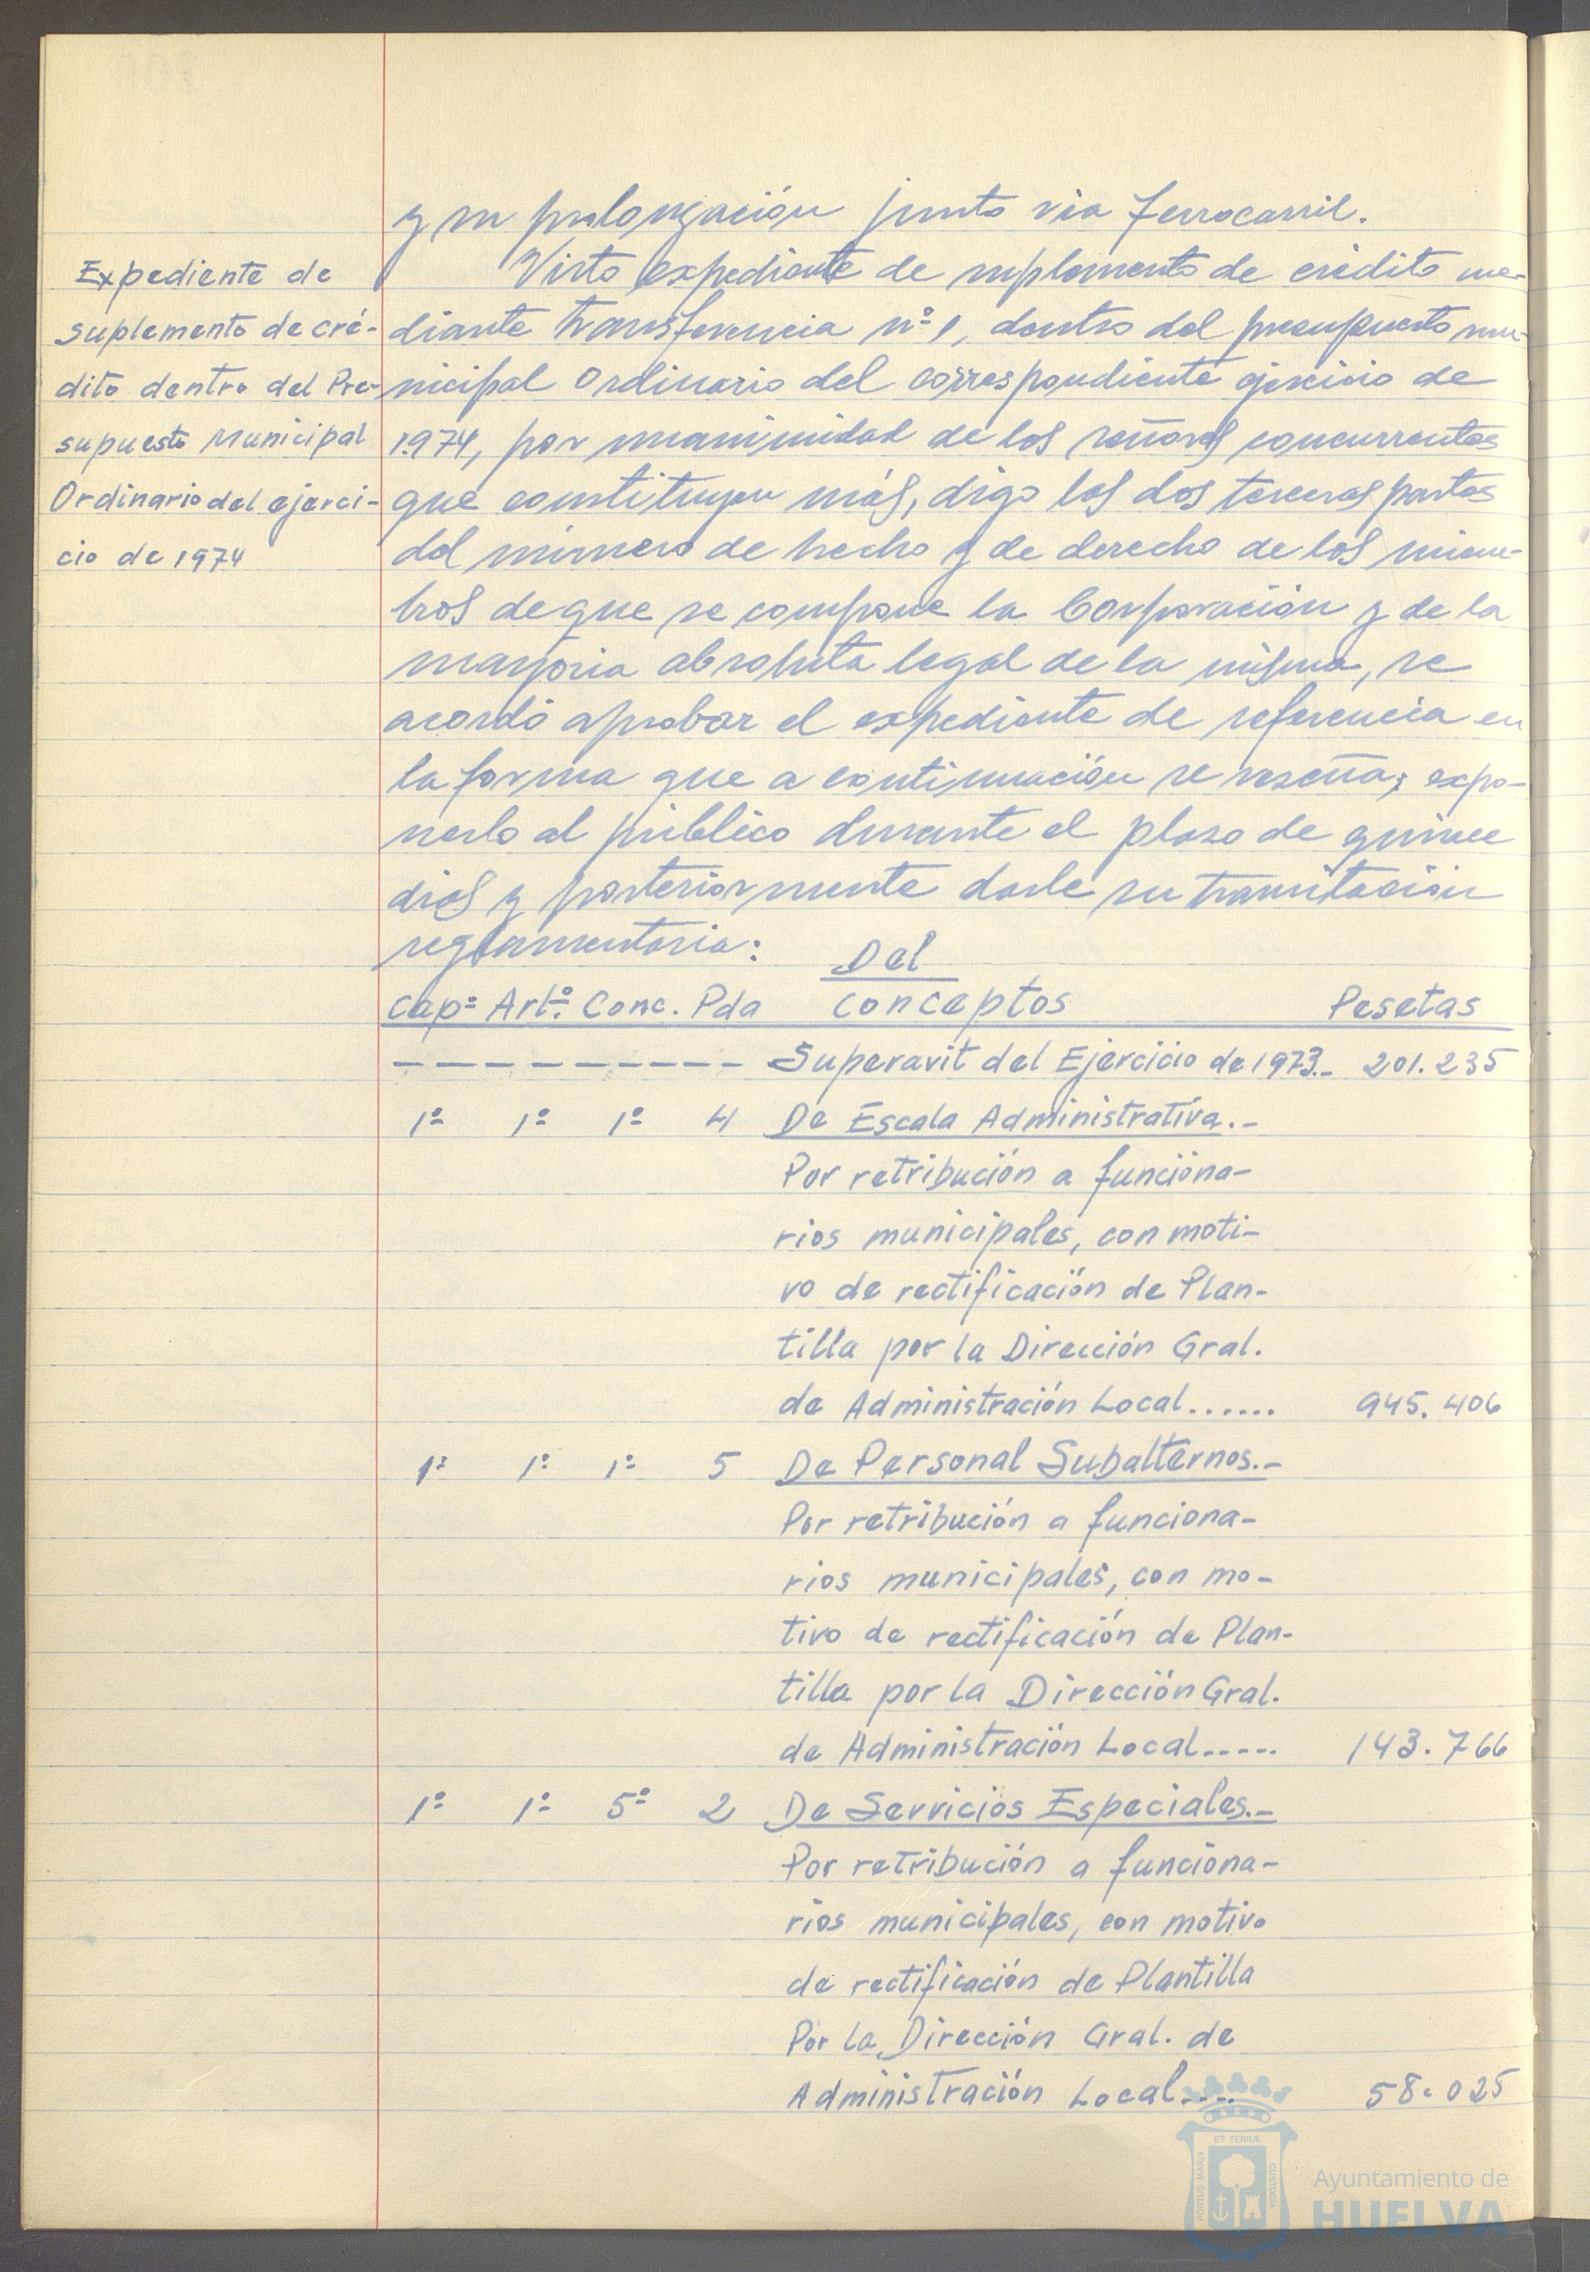 y su prolongación junto via ferrocarril.
Expediente de
suplemento de cré-
dito dentro del Pre-
supuesto Municipal
Ordinario del ejerci-
cio de 1974
Visto expediente de suplemento de crédito me-
diante transferencia nº 1, dentro del presupuesto mu-
nicipal Ordinario del correspondiente ejercicio de
1.974, por unanimidad de los señores concurrentes
que constituyen más, digo las dos terceras partes
del número de hecho y de derecho de los miem-
bros de que se compone la Corporación y de la
mayoria absoluta legal de la misma, se
acordó aprobar el expediente de referencia en
la forma que a continuación se reseña; expo-
nerlo al público durante el plazo de quince
dias y posteriormente darle su tramitación
reglamentaria:
Del
Capº Artº. Conc. Pda conceptos Pesetas
---------- Superavit del Ejercicio de 1973.- 201.235
1º 1º 1º 4 De Escala Administrativa.-
Por retribución a funciona-
rios municipales, con moti-
vo de rectificación de Plan-
tilla por la Dirección Gral.
de Administración Local...... 945.406
1º 1º 1º 5 De Personal Subalternos.-
Por retribución a funciona-
rios municipales, con mo-
tivo de rectificación de Plan-
tilla por la Dirección Gral.
de Administración Local..... 143.766
1º 1º 5º 2 De Servicios Especiales.-
Por retribución a funciona-
rios municipales, con motivo
de rectificación de Plantilla
Por la Dirección Gral. de
Administración Local.... 58.025
ET TERRÆ
PORTUS MARIS
CUSTODIA
Ayuntamiento de
HUELVA